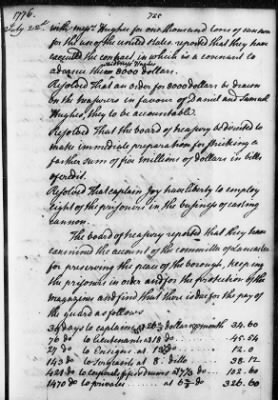 1776.
725
July 22d
with messrs Hughes for one thousand tons of cannon
for the use of the united states reported that they have
executed the contract in which is a covenant to
said messrs Hughes
advance them 8000 dollars.
Resolved That an order for 8000 dollars be drawn
on the treasurers in favour of Daniel and Samuel
Hughes, they to be accountable.
Resolved That the board of treasury be directed to
make immediate preparation for striking a
farther sum of five millions of dollars in bills
of credit.
Resolved That captain Joy have liberty to employ
eight of the prisoners in the business of casting
cannon.
The board of treasury reported that they have
examined the account of the committee of Lancaster
for preserving the peace of the borough, keeping
the prisoners in order and for the protection of the
magazines and find that there is due for the pay of
the guard as follows
39 days to captains at 26 2/3 dollars per month 34.60
76 do to lieutenants at 18 do 45.54
27 do to Ensigns at do 12.0
143 do to Sergeants at 8 ditto 38.12
421 do to corporals at 7 1/3 do 102.60
1470 do to privates at 6 2/3 do 326.60